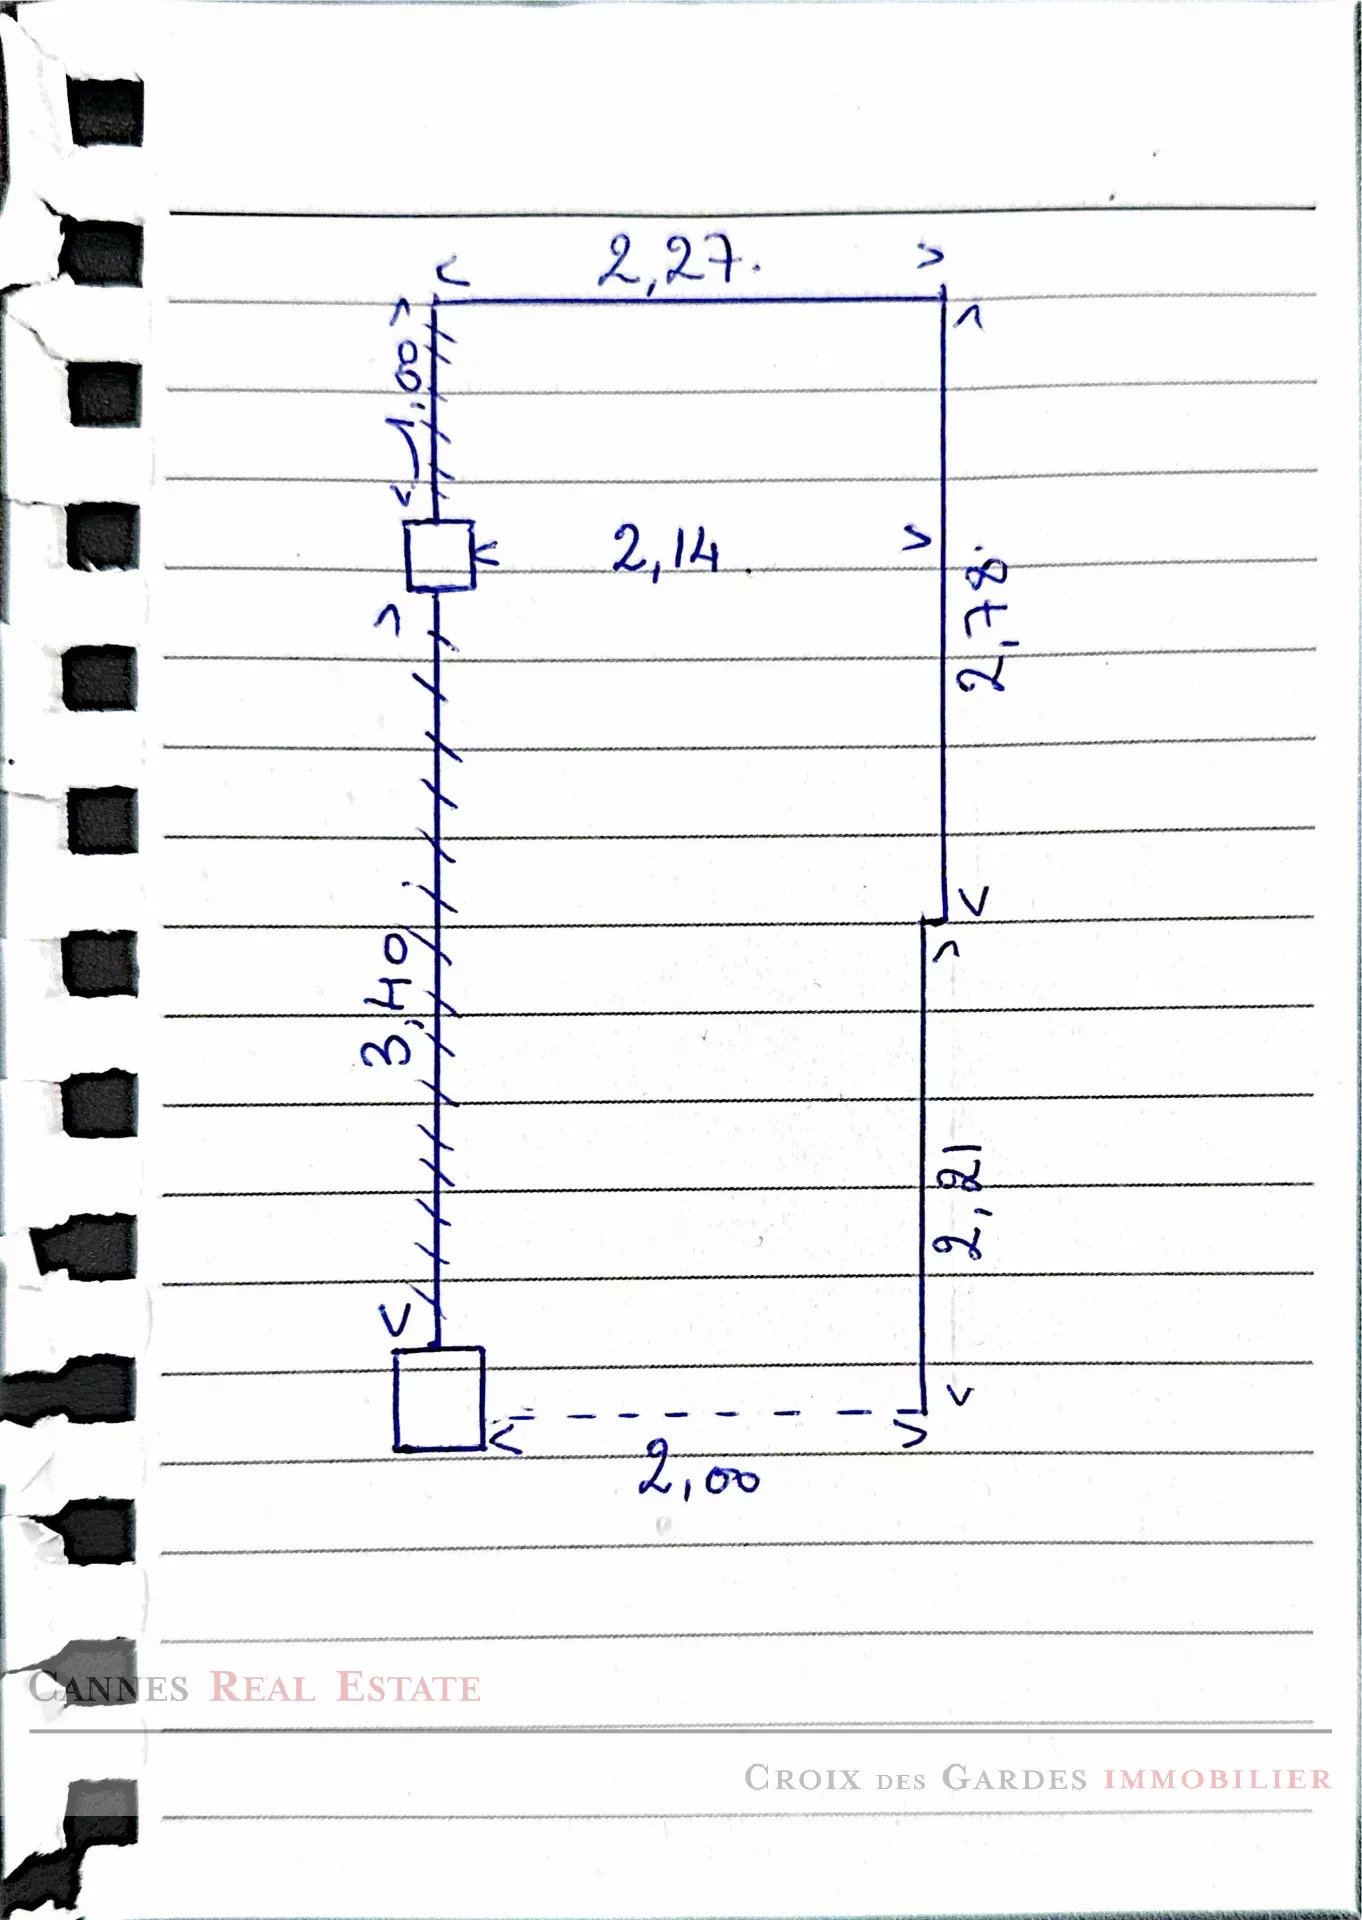 2,27.
1,00
2,14.
2,78
3,40
2,21
2,00
CANNES REAL ESTATE
CROIX DES GARDES IMMOBILIER